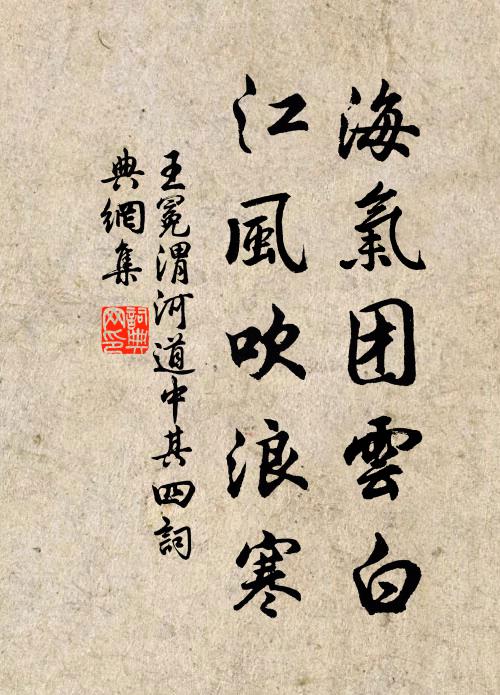 海氣团雲白
江風吹浪寒
王冕渭河道中其四詞
典網集
詞典
网印